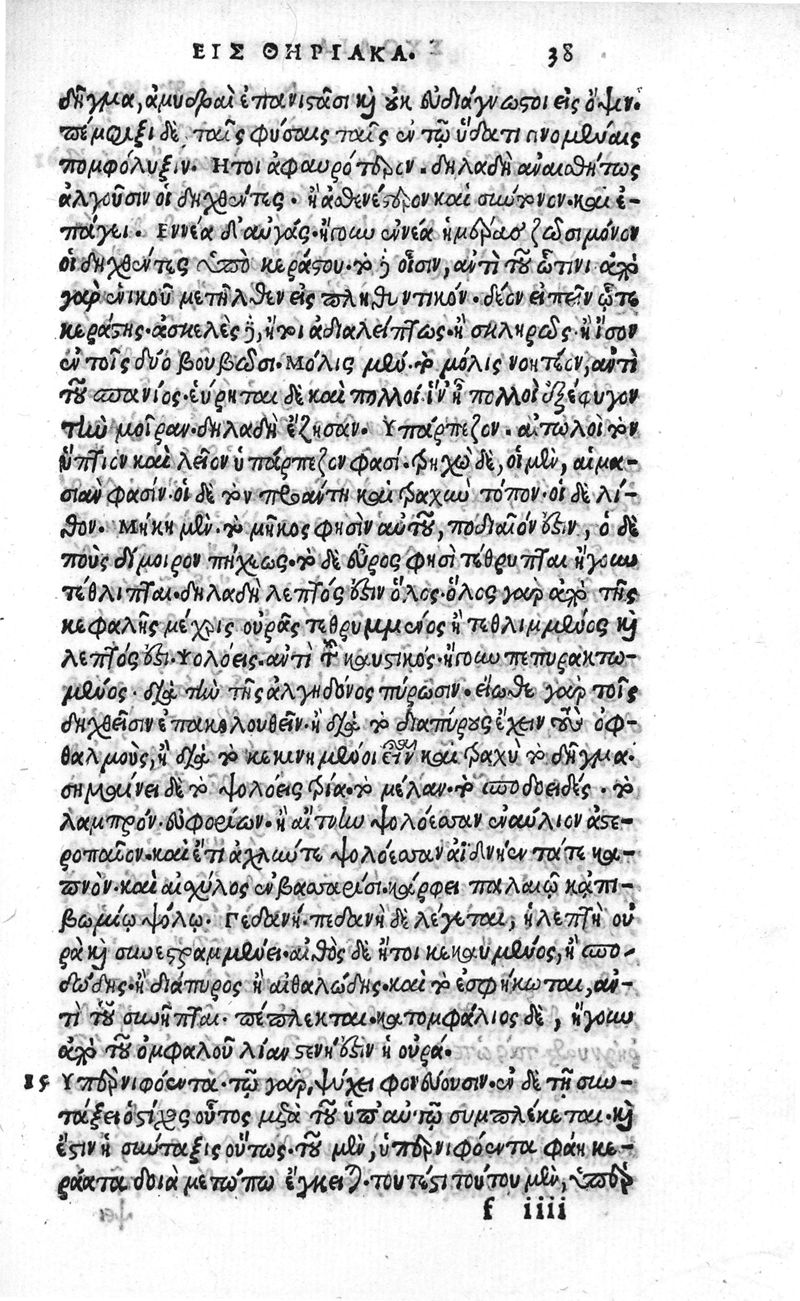 ΕΙΣ ΘΗΡΙΑΚΑ. 38
δῆγμα, ἀμυδραὶ ἐπανιστᾶσι καὶ οὐκ εὐδιάγνωστοι εἰς ὄψιν.
πέμφιξι δὲ ταῖς φύσαις ταῖς ἐν τῷ ὕδατι γινομέναις
πομφόλυξιν. Ητοι ἀφαυρότερον. δηλαδὴ ἀναισθήτως
ἀλγοῦσιν οἱ δηχθέντες. ἢ ἀσθενέστερον καὶ
πάγει. Εννέα δ' αὐγάς. ἤγουν ἐννέα ἡμέρας ζῶσι μόνον
οἱ δηχθέντες ὑπὸ κεράστου. τὸ οἷσιν, ἀντὶ τοῦ ᾧτινι ἀπὸ
γὰρ ἑνικοῦ μετῆλθεν εἰς πληθυντικόν. δέον εἰπεῖν
κεράστης. ἀσκελὲς ἤτοι ἀδιαλείπτως. ἢ σκληρῶς. ἢ ἴσον
ἐν τοῖς δύο βουβῶσι. Μόλις μὲν. τὸ μόλις νοητέον, ἀντὶ
τοῦ σπανίως. εὕρηται δὲ καὶ πολλοί. ἵν' ᾖ πολλοὶ ἐξέφυγον
τὴν μοῖραν. δηλαδὴ ἔζησαν. Υπάρπεζον. αἰπωλοὶ τὸν
ὕπτιον καὶ λεῖον ὑπάρπεζον φασί. ῥηχὼ δὲ, οἱ μὲν, αἱμα-
σιὰν φασίν. οἱ δὲ τὸν προάντη καὶ τραχὺν τόπον. οἱ δὲ λί-
θον. Μήκη μὲν. τὸ μῆκος φησὶν αὐτοῦ, ποδιαῖόν ἐστιν, ὁ δὲ
ποὺς δίμοιρον πήχεως. τὸ δὲ εὖρος φησὶ τέθρυπται ἤγουν
τέθλιπται. δηλαδὴ λεπτός ἐστιν ὅλος. ὅλος γὰρ ἀπὸ τῆς
κεφαλῆς μέχρις οὐρᾶς τεθρυμμένος ἢ τεθλιμμένος καὶ
λεπτός ἐστι. Ψολόεις. ἀντὶ τοῦ καυστικός. ἤγουν πεπυρακτω-
μένος. διὰ τὴν τῆς ἀλγηδόνος πύρωσιν. εἴωθε γὰρ τοῖς
δηχθεῖσιν ἐπακολουθεῖν. ἢ διὰ τὸ διαπύρους ἔχειν τοὺς ὀφ-
θαλμοὺς, ἢ διὰ τὸ κεκινημένοι εἶναι καὶ τραχὺ τὸ δῆγμα.
σημαίνει δὲ τὸ ψολόεις τρία. τὸ μέλαν. τὸ σποδοειδές. τὸ
λαμπρόν. εὐφορίων. ἢ αἴτνην ψολόεσσαν ἐναύλιον ἀστε-
ροπαῖον. καὶ ἔτι ἀχλύν τε ψολόεσσαν ἀϊδνήεντά τε κα-
πνόν. καὶ αἰσχύλος ἐν βασσαρίσι. κάρφει παλαιῷ κἀπι-
βωμίῳ ψόλῳ. Γεδανή. πεδανὴ δὲ λέγεται, ἡ λεπτὴ οὐ-
ρὰ καὶ συνεστραμμένη. αἰθὸς δὲ ἤτοι κεκαυμένος, ἢ σπο-
δώδης. ἢ διάπυρος ἢ αἰθαλώδης. καὶ τὸ ἐσφήκωται, ἀν-
τὶ τοῦ συνῆπται. πέπλεκται. κατομφάλιος δὲ, ἤγουν
ἀπὸ τοῦ ὀμφαλοῦ λίαν στενή ἐστιν ἡ οὐρά.
15 Υπερνιφόεντα. τῷ γὰρ, ψύχει φονεύουσιν. ἐν δὲ τῇ συν-
τάξει ὁ στίχος οὗτος μετὰ τοῦ ὑπ' αὐτῷ συμπλέκεται. καὶ
ἔστιν ἡ σύνταξις οὕτως. τοῦ μὲν, ὑπερνιφόεντα φάη κε-
ράατα δοιὰ μετώπῳ ἔγκειται. τουτέστι τούτου μὲν, ὑπὲρ
f iiii